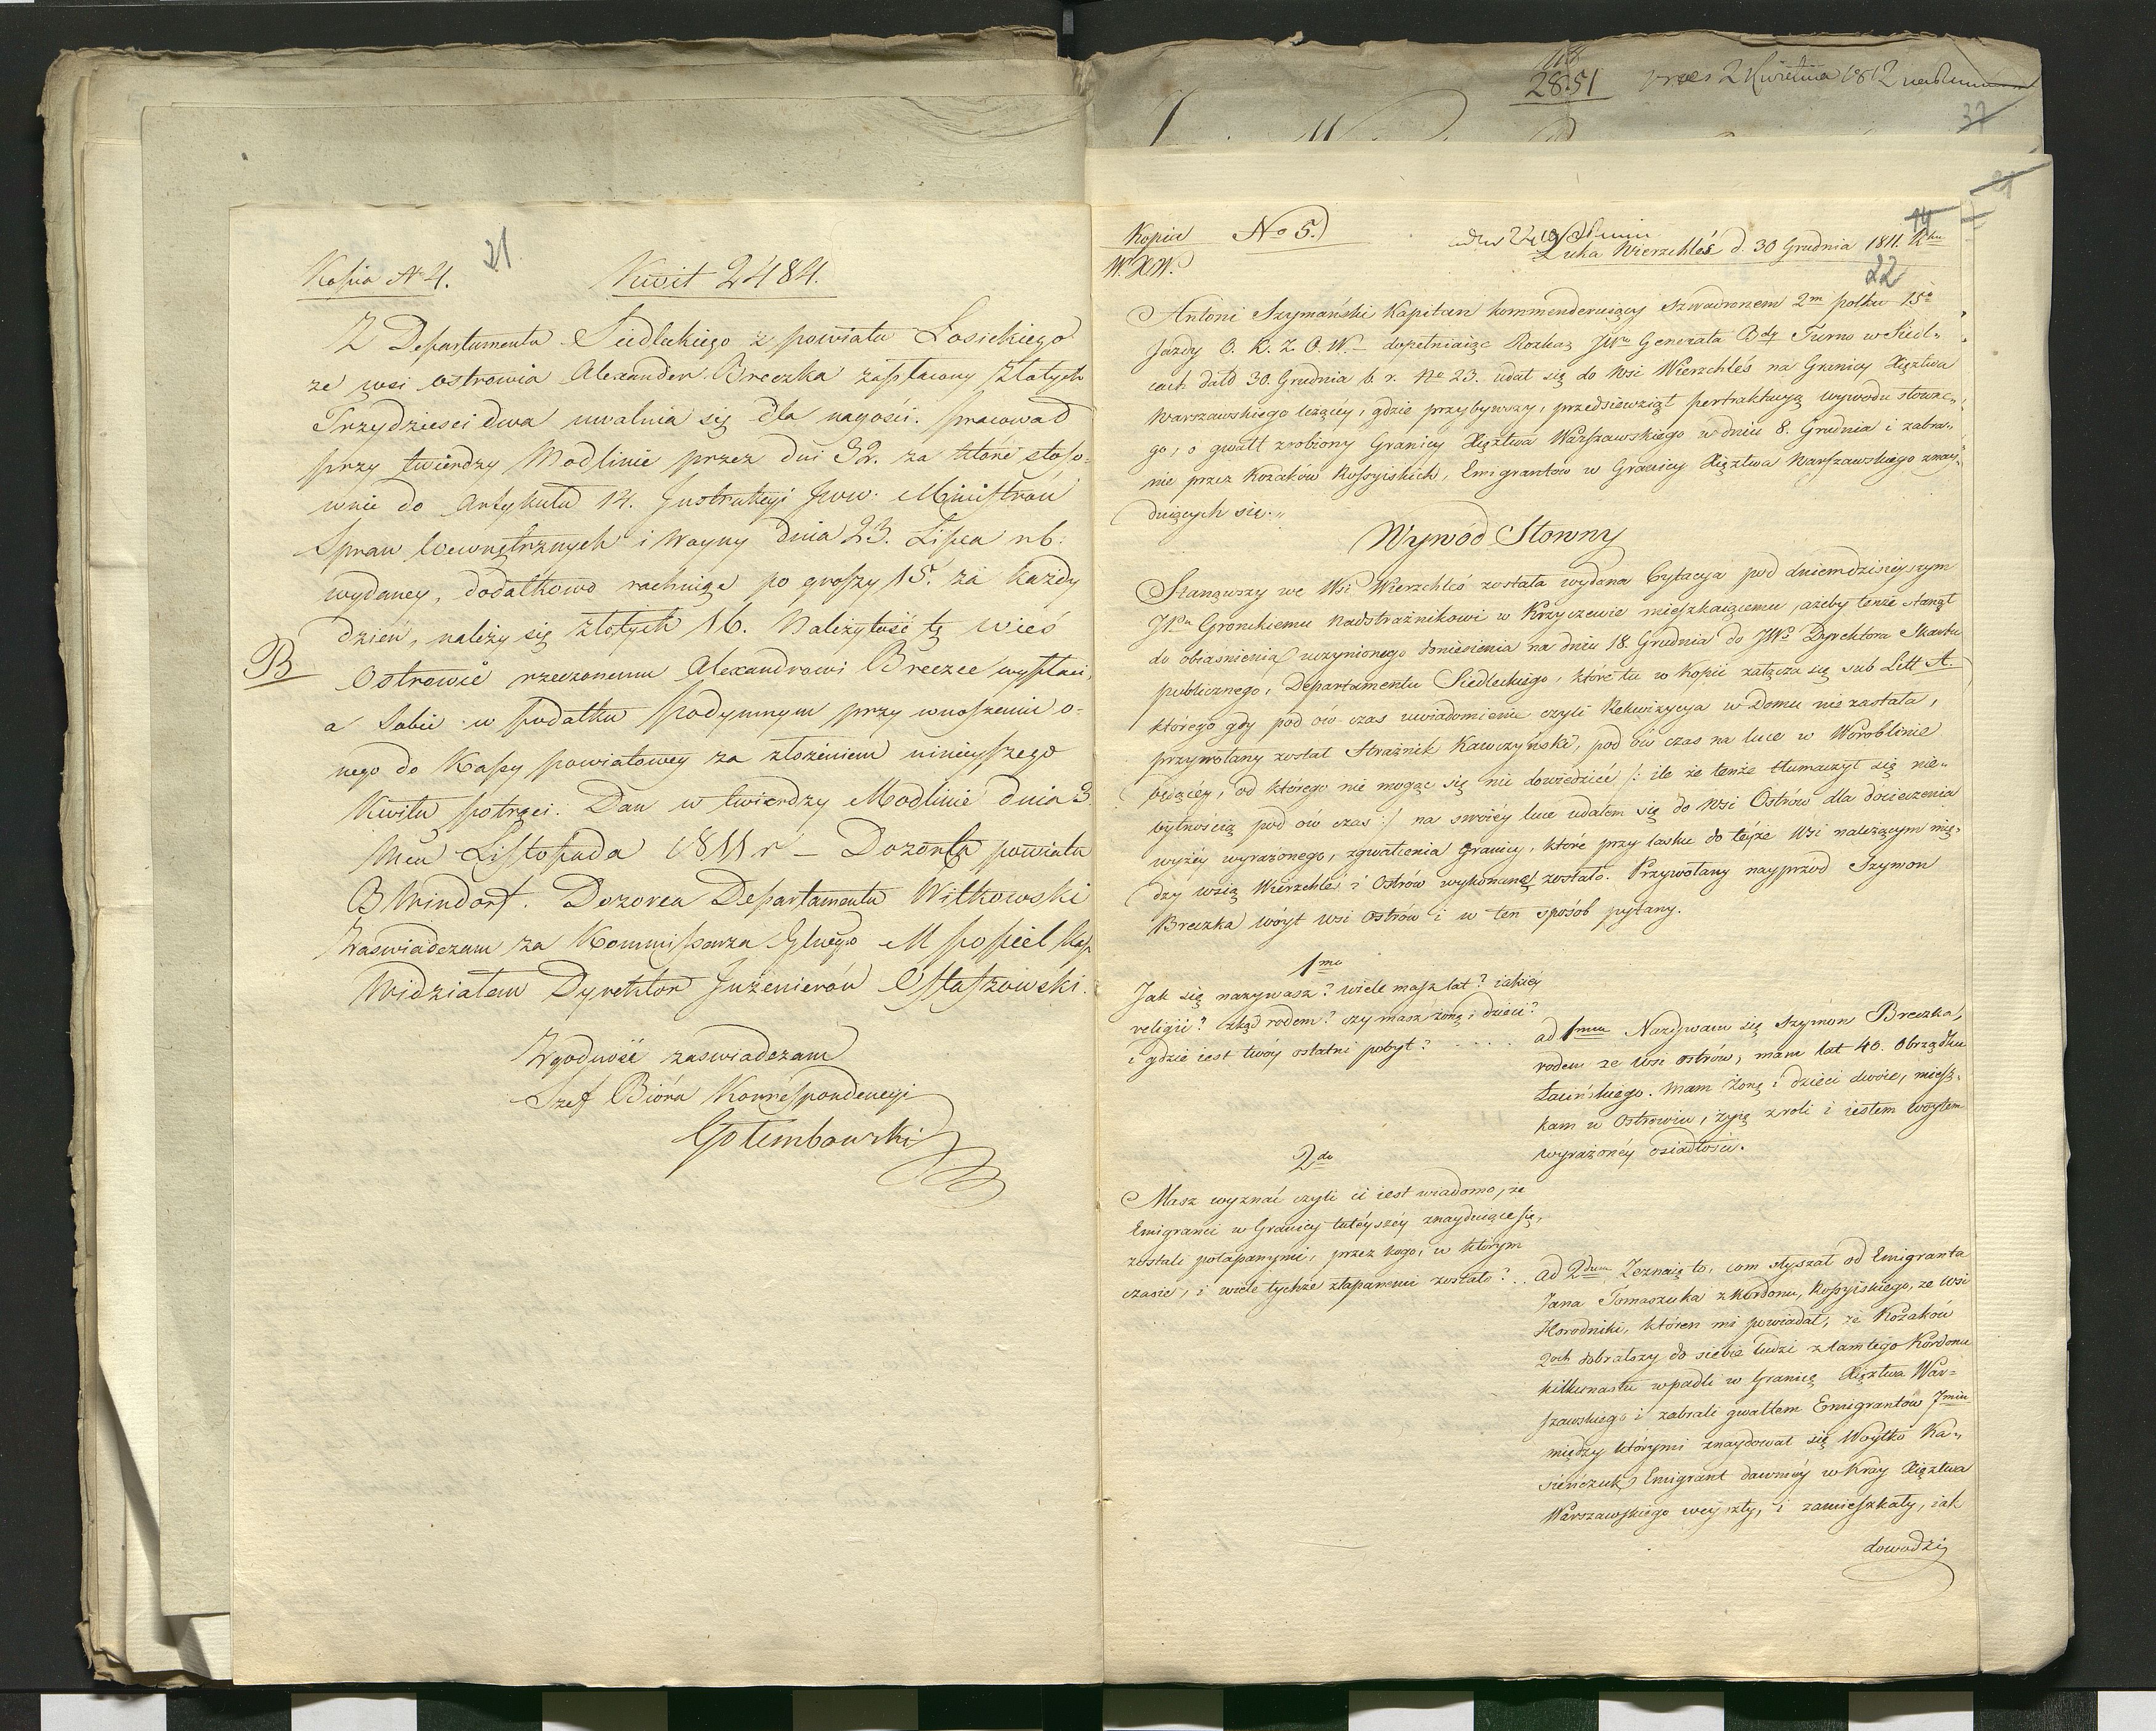 Kopia No 4.
21.
Kwit 2484.
Z Departamentu Siedleckiego z powiatu Łosickiego
ze wsi Ostrowia Alexander Breczka zapłacony Złotych
Trzydzieści dwa uwalnia się dla nagości. pracował
przy twierdzy Modlinie przez dni 32. za które stoso-
wnie do Artykułu 14. Instrukcyi JWW. Ministrów
Spraw Wewnętrznych i Woyny dnia 23. Lipca rb.
wydaney, dodatkowo rachuiąc po groszy 15. za każdy
dzień, należy się złotych 16. Należytość tę wieś
B
Ostrowie rzeczonemu Alexandrowi Breczce wypłaci,
a Sobie w podatku podymnym przy wnoszeniu o-
nego do Kassy powiatowey za złożeniem ninieyszego
Kwitu potrąci. Dan w twierdzy Modlinie dnia 3.
Mca Listopada 1811 r – Dozorca powiatu
B Windorf. Dozorca Departamentu Witkowski
Zaswiadczam za Kommissarza Głnego M Pospiel Kap
Widziałem Dyrektor Inżenierów Ostaszowski.
Zgodność zaswiadczam
Szef Bióra Korrespondencyi
Gołembowski
118
2851 2 Kwietnia 1812
37
21
Kopia No 5.
W.X.W.
14
Łuka Wierzchleś d. 30 Grudnia 1811. Rku
22
Antoni Szymański Kapitan kommenderuiący Szwadronem 2m polku 15o
Jazdy O. K. Z. O. W. – dopełniaiąc Rozkaz JWo Generała Bdy Turno w Siedl„
cach datd 30. Grudnia b. r. No 23. udał się do Wsi Wierzchleś na Granicy Xięztwa
Warszawskiego leżącéy, gdzie przybywszy, przedsiewziął pertraktacyą wywodu słowne„
go, o gwałt zrobiony Granicy Xięztwa Warszawskiego w dniu 8. Grudnia i zabra„
nie przez Kozaków Rossyiskich, Emigrantów w Granicy Xięztwa Warszawskiego znay„
duiących się.„
Wywód Słowny
Stanąwszy we Wsi Wierzchleś została wydana Cytacya pod dniem dzisieyszym
JPu Gronckiemu Nadstrażnikowi w Krzyczewie mieszkaiącemu, ażeby tenże stanął
do obiasnienia uczynionego doniesienia na dniu 18. Grudnia do JWo Dyrektora Skarbu
publicznego, Departamentu Siedleckiego, które tu w Kopii załącza się sub Litt A.
którego gdy pod ów czas uwiadomienie czyli Rekwizycya w Domu nie zastała,
przywołany został Strażnik Kawczyński, pod ów czas na luce w Woroblinie
będącey, od którego nie mogąc się nic dowiedzieć /: ile że tenże tłumaczył się nie„
bytnością pod ow czas :/ na swoiéy luce udałem się do Wsi Ostrów dla docieczenia
wyżéy wyrażonego, zgwałcenia Granicy, które przy lasku do téyże Wsi należącym mię„
dzy wsią Wierzchleś i Ostrów wykonane zostało. Przywołany nayprzod Szymon
Breczka wóyt wsi Ostrów i w ten sposób pytany.
1mo
Jak się nazywasz? wiele masz lat? iakiéy
religii? zkąd rodem? czy masz żonę i dzieci?
i gdzie iest twóy ostatni pobyt? . . . . .
ad 1mum Nazywam się Szymon Breczka,
rodem ze Wsi Ostrów, mam lat 40. Obrządku
Łacińskiego. Mam Żonę i dzieci dwoie, miesz„
kam w Ostrowiu, żyię z roli i iestem woytem
wyrażonéy osiadłości.
2do
Masz wyznać czyli ci iest wiadomo, że
Emigranci w Granicy tuteyszéy znayduiące się,
zostali połapanymi, przez kogo, i w którym
czasie, i wiele tychże złapanemi zostało? . .
ad 2dum Zeznaię to, com słyszał od Emigranta
Jana Tomaszuka z Kordonu, Rossyiskiego, ze wsi
Horodniki, któren mi powiadał, że Kozaków
2och dobrałszy do siebie ludzi z tamtego Kordonu
kilkunastu wpadli w Granicę Xięztwa War„
szawskiego i zabrali gwałtem Emigrantów 7miu
między którymi znaydował się Woytko Ka„
sieńczuk Emigrant dawniéy w Kray Xięztwa
Warszawskiego weyszły, i zamieszkały, iak
dowodzi